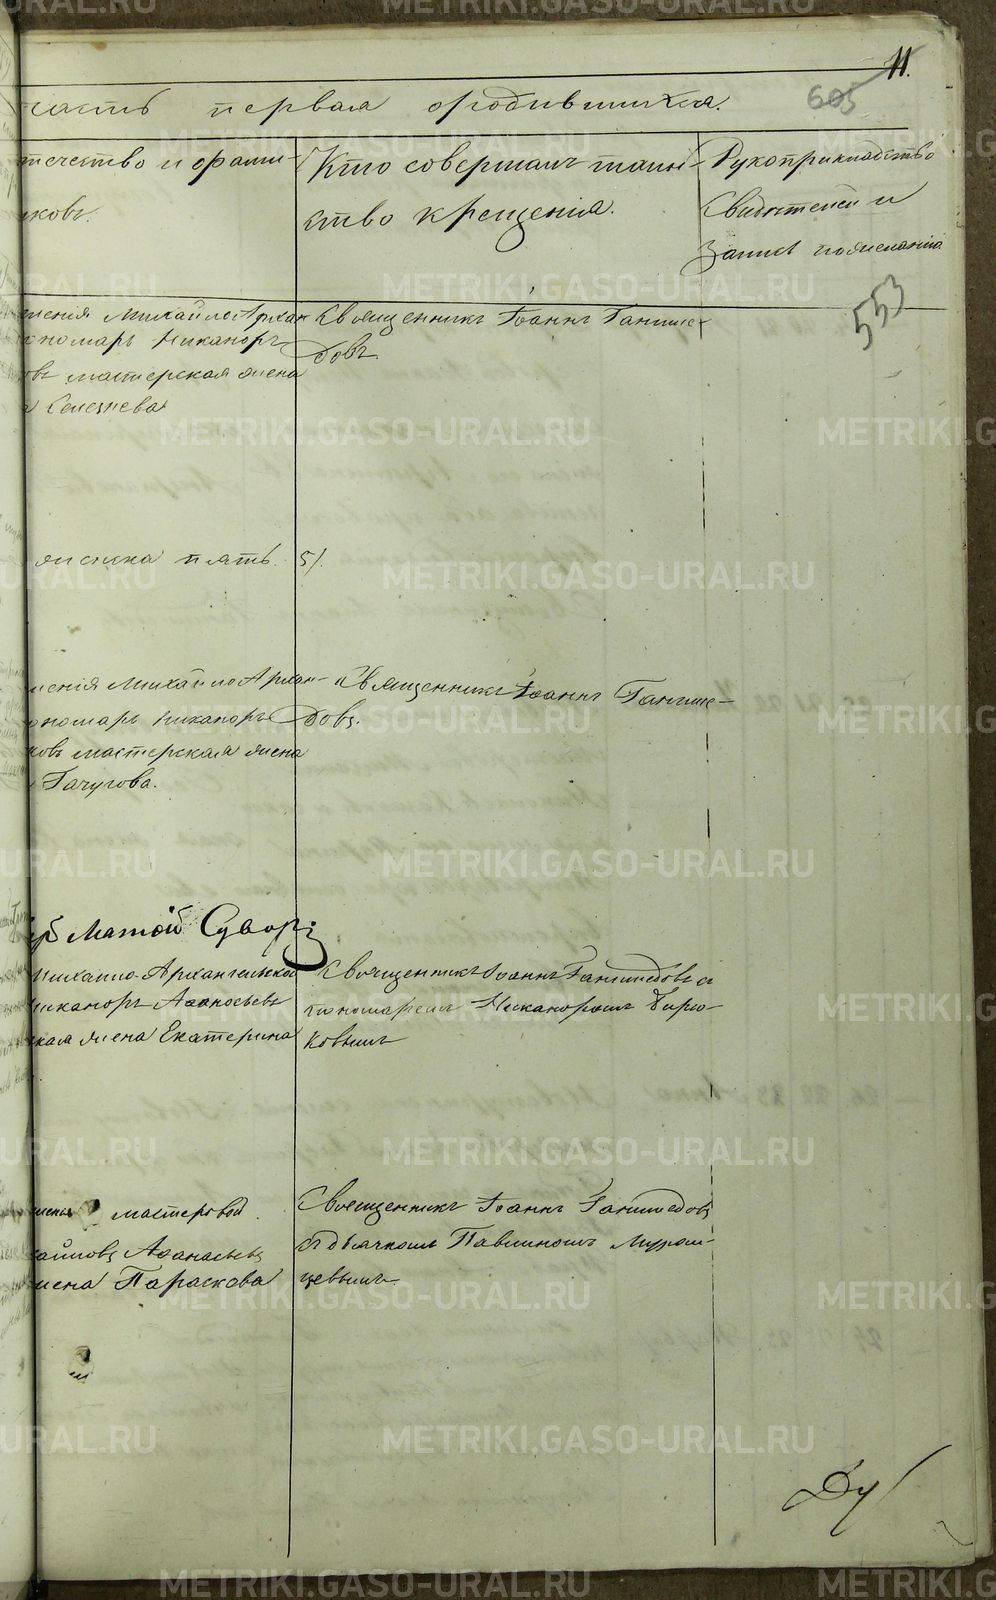 11.
605
часть первая о родившихся.
течество и фами-
иковъ.
Кто совершалъ таин-
ство крещенія.
Рукоприкладство
свидѣтелей и
записъ по желанію
553
шенія Михайло Архан
ономарь Никаноръ
овъ мастерская жена
а Селезнева
Священникъ Іоаннъ Ганиме-
довъ.
женска пять 5/.
шенія Михайло Архан-
ономарь Никаноръ
ковъ мастерская жена
Гачугова.
Священникъ Іоаннъ Ганиме-
довъ.
Михайло-Архангельской
Никаноръ Аѳанасьевъ
ская жена Екатерина
Священникъ Іоаннъ Ганимедовъ съ
пономаремъ Никаноромъ Бирю-
ковымъ
мастеровой
хайловъ Аѳанасьевъ
жена Параскова
Священникъ Іоаннъ Ганимедовъ
съ дьячкомъ Павлиномъ Муром-
цевымъ
Ду
METRIKI.GASO-URAL.RU